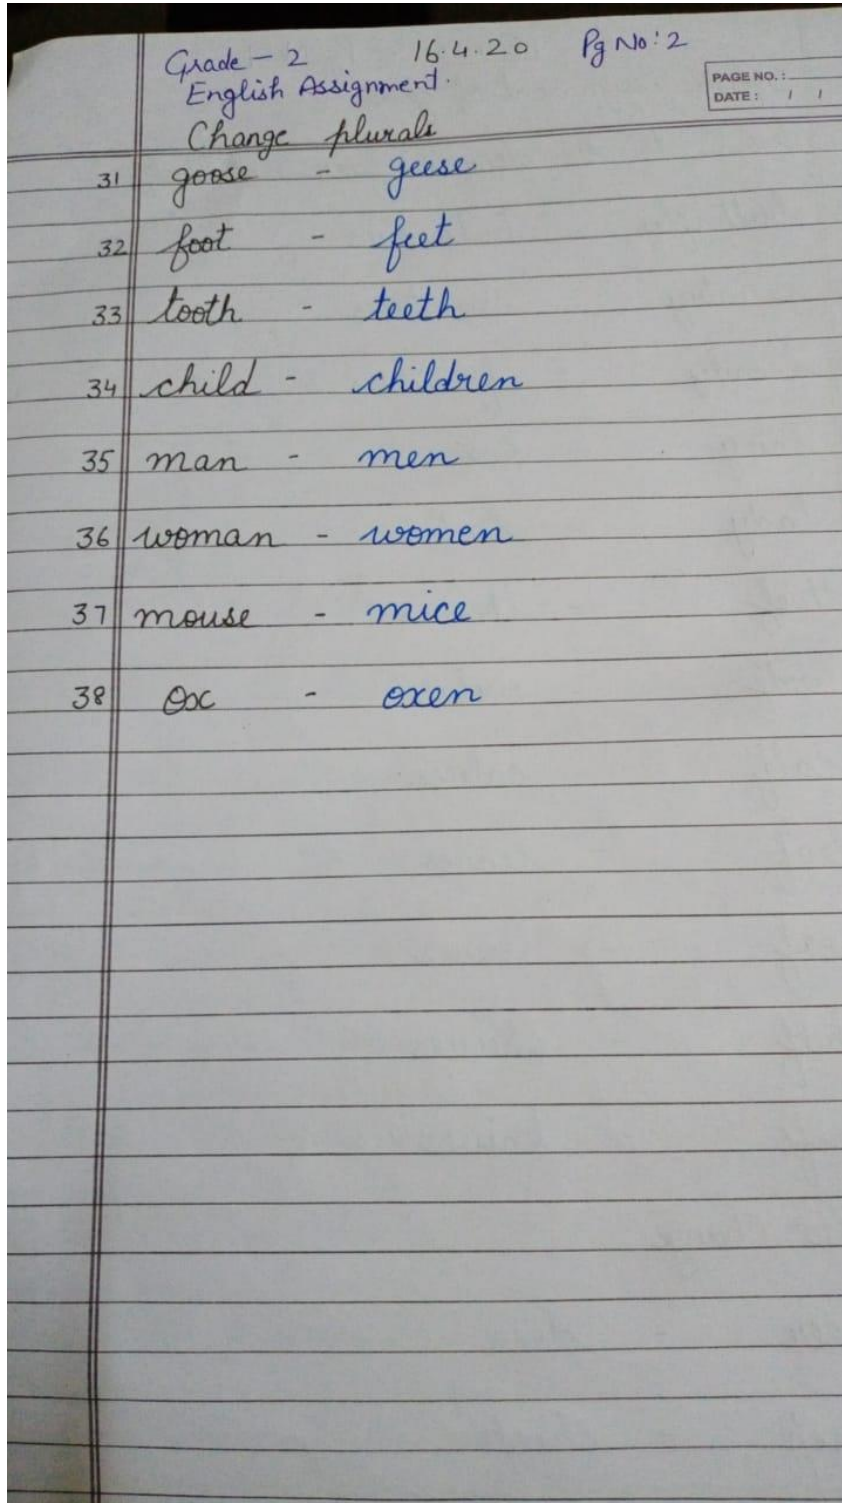 Grade - 2 16.4.20 Pg No: 2
English Assignment.
PAGE NO. :
DATE : / /
Change plurals
31 goose - geese
32 foot - feet
33 tooth - teeth
34 child - children
35 man - men
36 woman - women
37 mouse - mice
38 Ox - oxen